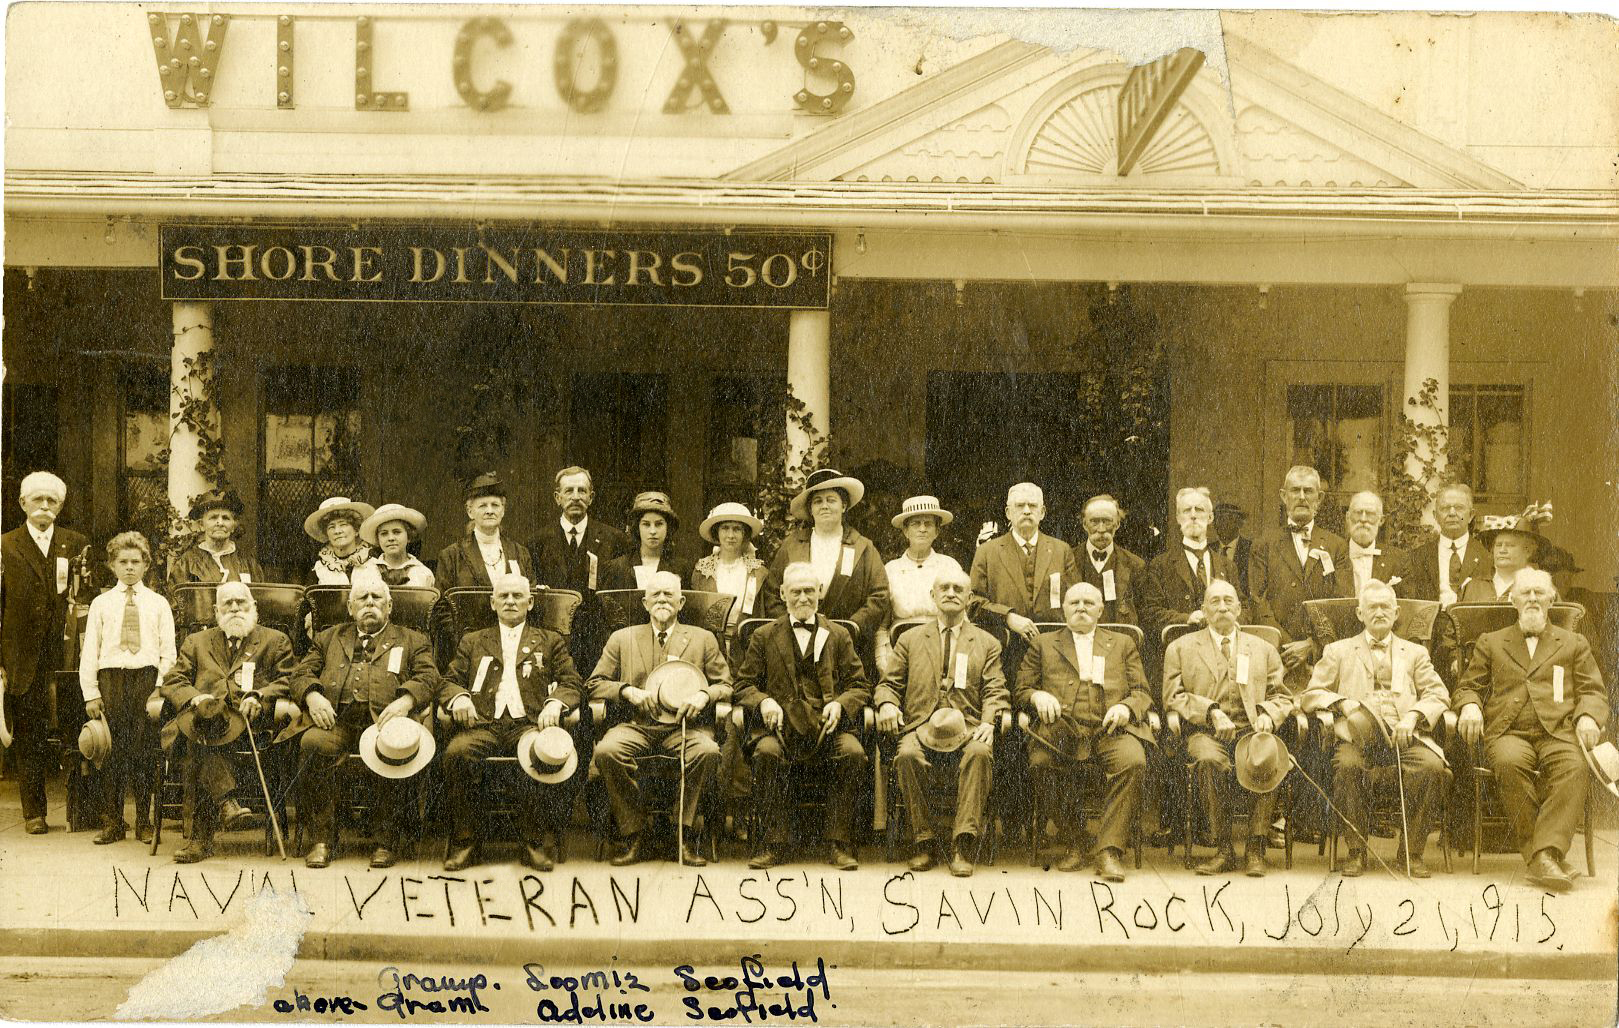 WILCOX'S
SHORE DINNERS 50¢
NAVAL VETERAN ASS'N, SAVIN ROCK, July 21, 1915.
Gramp. Loomis Scofield
above Gram Adeline Scofield